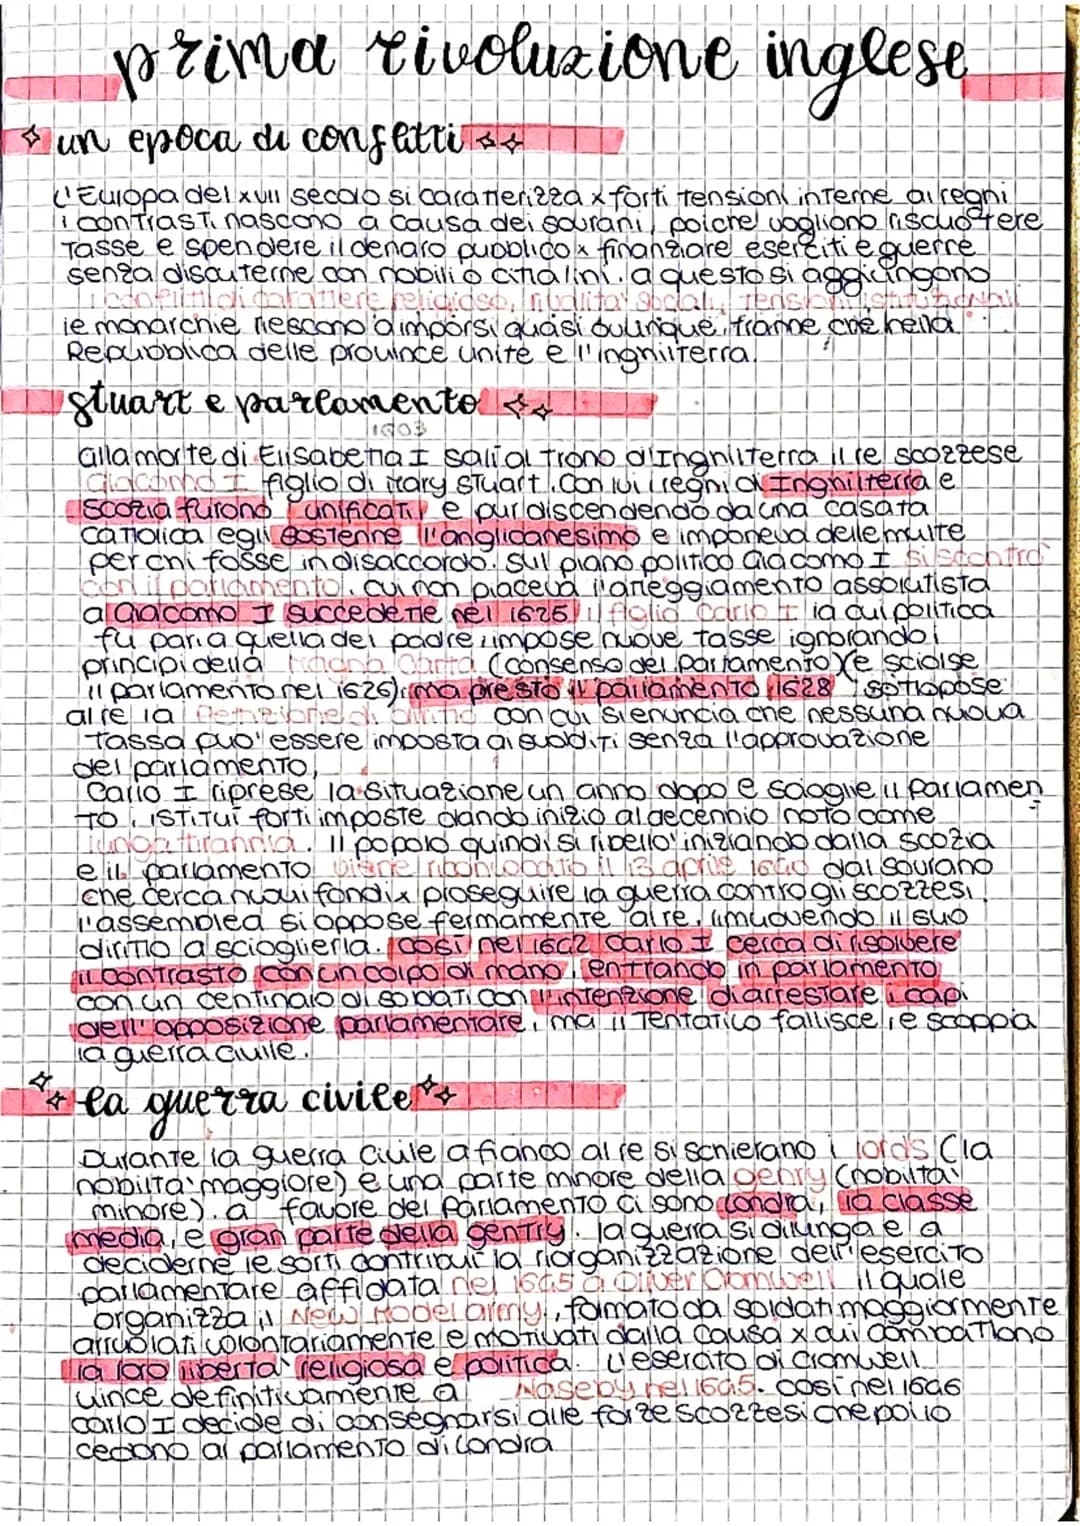 prima rivoluzione inglese
un epoca di conflitti
L'Europa del XVII secolo si caratterizza x forti tensioni interne ai regni
i contrasti nascono a causa dei sovrani, poiche' vogliono riscuotere
tasse e spendere il denaro pubblico x finanziare eserciti e guerre
senza discuterne con nobili o cittadini. a questo si aggiungono
i conflitti di carattere religioso, rivalita' sociali, tensioni istituzionali
le monarchie riescono a imporsi quasi ovunque, tranne che nella
Repubblica delle province unite e l'inghilterra.
stuart e parlamento
1603
alla morte di Elisabetta I sali al trono d'Inghilterra il re scozzese
Giacomo I figlio di Mary Stuart. Con lui i regni di Inghilterra e
Scozia furono unificati, e pur discendendo da una casata
cattolica egli sostenne l'anglicanesimo e imponeva delle multe
per chi fosse in disaccordo. Sul piano politico Giacomo I si scontro'
con il parlamento, cui non piaceva l'atteggiamento assolutista
a Giacomo I succedette nel 1625 il figlio Carlo I la cui politica
fu pari a quella del padre, impose nuove tasse ignorando i
principi della Magna Carta (consenso del parlamento) (e sciolse
il parlamento nel 1626), ma presto il parlamento 1628 sottopose
al re la Petizione di diritto con cui si enuncia che nessuna nuova
tassa puo' essere imposta ai sudditi senza l'approvazione
del parlamento,
Carlo I riprese la situazione un anno dopo e scioglie il Parlamen
to, istitui' forti imposte dando inizio al decennio noto come
lunga tirannia. Il popolo quindi si ribello' iniziando dalla scozia
e il parlamento viene riconvocato il 13 aprile 1640 dal sovrano
che cerca nuovi fondi x proseguire la guerra contro gli scozzesi,
l'assemblea si oppose fermamente al re, rimuovendo il suo
diritto a scioglierla. così nel 1642 Carlo I cerca di risolvere
il contrasto con un colpo di mano, entrando in parlamento
con un centinaio di soldati con l'intenzione di arrestare i capi
dell'opposizione parlamentare, ma il tentativo fallisce, e scoppia
la guerra civile.
la guerra civile
Durante la guerra civile a fianco al re si schierano i lords (la
nobilta' maggiore) e una parte minore della genrry (nobilta'
minore). a favore del Parlamento ci sono Londra, la classe
media, e gran parte della gentry. la guerra si dilunga e a
deciderne le sorti contribui' la riorganizzazione dell'esercito
parlamentare affidata nel 1645 a Oliver Cromwell il quale
organizza il New Model army, formato da soldati maggiormente
arruolati volontariamente e motivati dalla causa x cui combattono
la loro liberta' religiosa e politica. L'esercito di Cromwell
vince definitivamente a Naseby nel 1645. così nel 1646
Carlo I decide di consegnarsi alle forze scozzesi che poi lo
cedono al parlamento di Londra